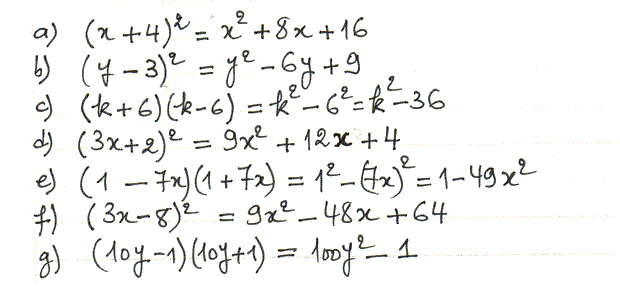 a) (x + 4)² = x² + 8x + 16
b) (y - 3)² = y² - 6y + 9
c) (k + 6)(k - 6) = k² - 6² = k² - 36
d) (3x + 2)² = 9x² + 12x + 4
e) (1 - 7x)(1 + 7x) = 1² - (7x)² = 1 - 49x²
f) (3x - 8)² = 9x² - 48x + 64
g) (10y - 1)(10y + 1) = 100y² - 1